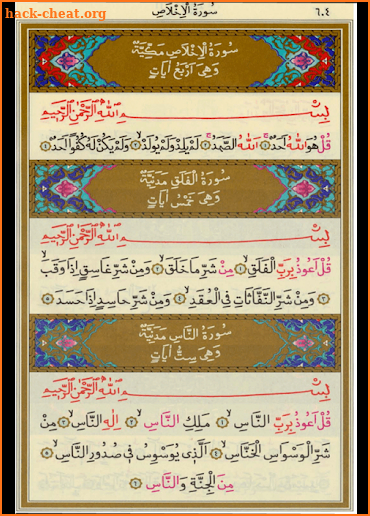 hack-cheat.org
سُورَةُ الْاِخْلَاصِ ٦٠٤
سُورَةُ الْاِخْلَاصِ مَكِّيَّةٌ
وَهِىَ اَرْبَعُ اٰيَاتٍ
بِسْمِ اللّٰهِ الرَّحْمٰنِ الرَّحِيمِ
قُلْ هُوَ اللّٰهُ اَحَدٌۚ ١ اَللّٰهُ الصَّمَدُۚ ٢ لَمْ يَلِدْ وَلَمْ يُولَدْۙ ٣ وَلَمْ يَكُنْ لَهُ كُفُوًا اَحَدٌ ٤
سُورَةُ الْفَلَقِ مَدَنِيَّةٌ
وَهِىَ خَمْسُ اٰيَاتٍ
بِسْمِ اللّٰهِ الرَّحْمٰنِ الرَّحِيمِ
قُلْ اَعُوذُ بِرَبِّ الْفَلَقِۙ ١ مِنْ شَرِّ مَا خَلَقَۙ ٢ وَمِنْ شَرِّ غَاسِقٍ اِذَا وَقَبَۙ
٣ وَمِنْ شَرِّ النَّفَّاثَاتِ فِى الْعُقَدِۙ ٤ وَمِنْ شَرِّ حَاسِدٍ اِذَا حَسَدَ ٥
سُورَةُ النَّاسِ مَدَنِيَّةٌ
وَهِىَ سِتُّ اٰيَاتٍ
بِسْمِ اللّٰهِ الرَّحْمٰنِ الرَّحِيمِ
قُلْ اَعُوذُ بِرَبِّ النَّاسِۙ ١ مَلِكِ النَّاسِۙ ٢ اِلٰهِ النَّاسِۙ ٣ مِنْ
شَرِّ الْوَسْوَاسِ الْخَنَّاسِۙ ٤ اَلَّذِى يُوَسْوِسُ فِى صُدُورِ النَّاسِۙ ٥
مِنَ الْجِنَّةِ وَالنَّاسِ ٦
hack-cheat.org